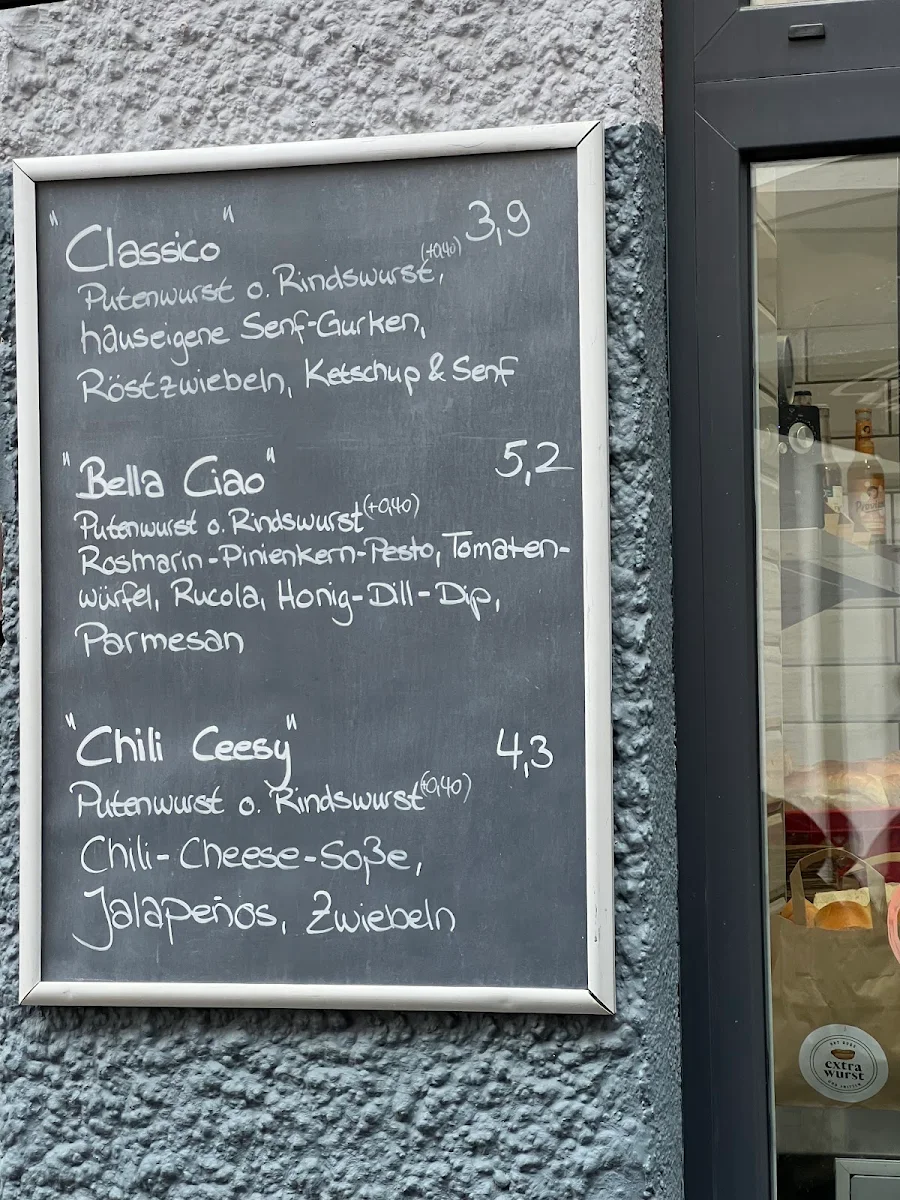 "Classico" 3,9
Putenwurst o. Rindswurst, (+0,40)
hauseigene Senf-Gurken,
Röstzwiebeln, Ketschup & Senf
"Bella Ciao" 5,2
Putenwurst o. Rindswurst (+0,40)
Rosmarin-Pinienkern-Pesto, Tomaten-
würfel, Rucola, Honig-Dill-Dip,
Parmesan
"Chili Ceesy" 4,3
Putenwurst o. Rindswurst (+0,40)
Chili-Cheese-Soße,
Jalapeños, Zwiebeln
HOT DOGS
extra
wurst
UND FRITTEN